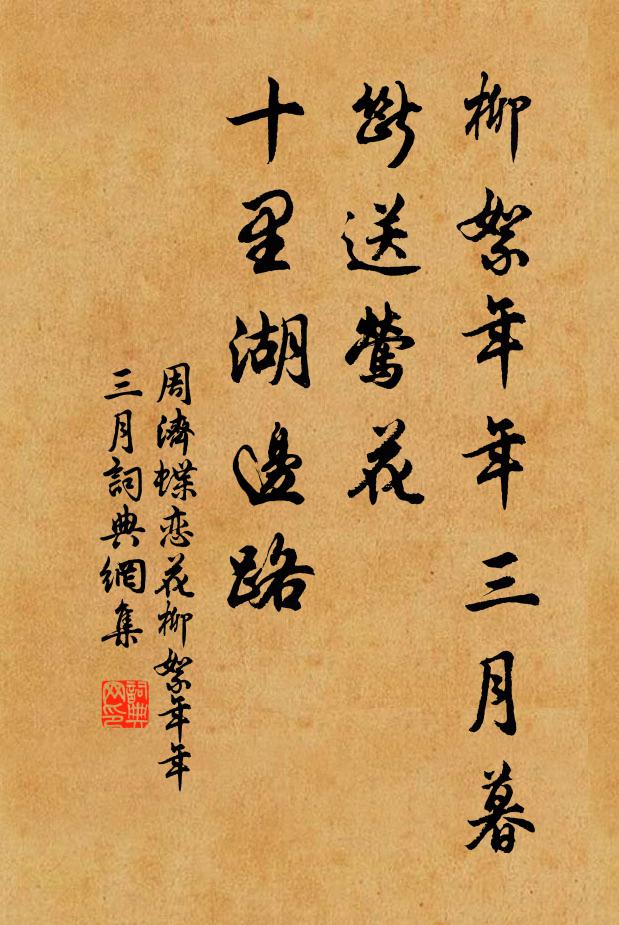 柳絮年年三月暮
斷送鶯花
十里湖邊路
周濟蝶恋花柳絮年年
三月詞典網集
詞典
网印